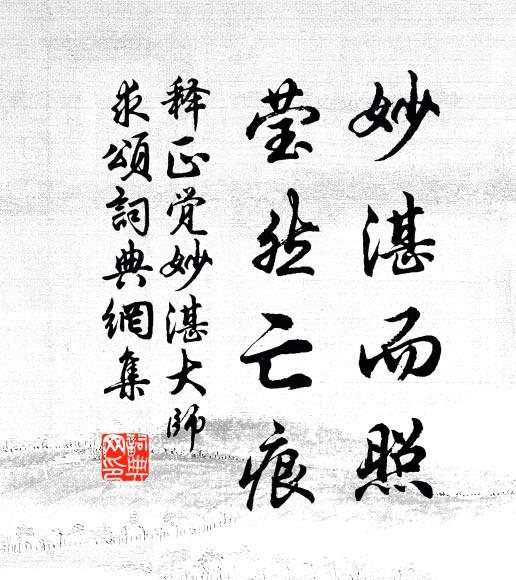 妙湛而照
莹然亡痕
释正觉妙湛大师
求頌詞典網集